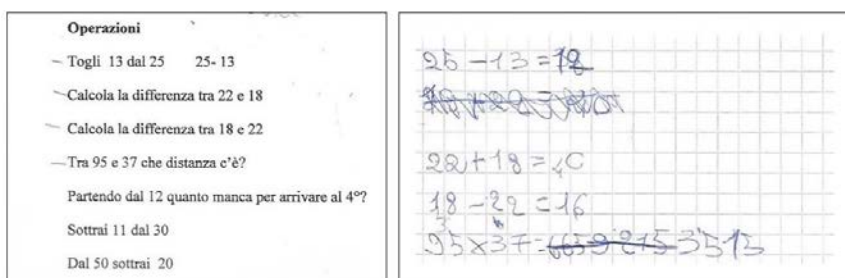 Operazioni
Togli 13 dal 25 25- 13
Calcola la differenza tra 22 e 18
Calcola la differenza tra 18 e 22
Tra 95 e 37 che distanza c'è?
Partendo dal 12 quanto manca per arrivare al 4°?
Sottrai 11 dal 30
Dal 50 sottrai 20
25-13=12
22+18=40
18-22=16
95x37= 3515